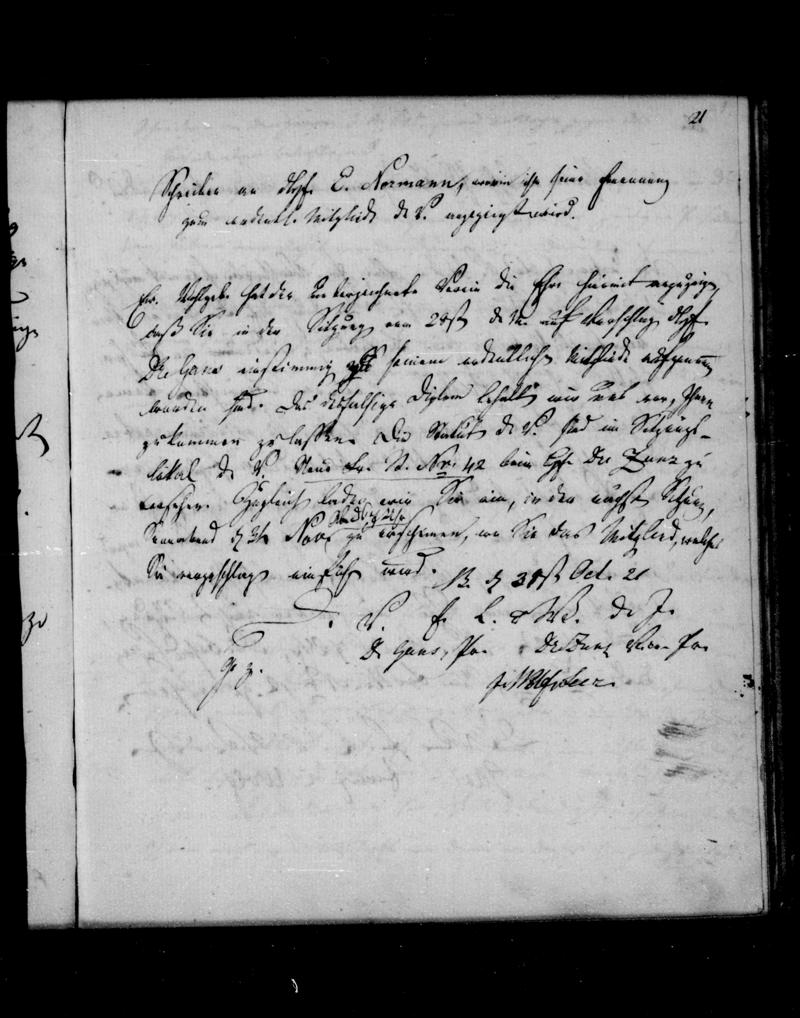 21
Schreiben an Hrn. E. Normann, worin ihm seine Ernennung
zum ordentl. Mitgliede d. V. angezeigt wird.
Ew. Wohlgeb. hat der unterzeichnete Verein die Ehre hiermit anzuzeigen,
daß Sie in der Sitzung vom 28st. d. M. auf Vorschlag
Dr. Gans einstimmig zu seinem ordentlichen Mitgliede aufgenommen
worden sind. Das desfallsige Diplom behält man uns vor, Ihnen
zukommen zu lassen. Die Statuten d. V. sind im Sitzungs-
lokal d. V. Neue Fr. St. No. 42 beim Hrn. Dr. Zunz zu
ersehen. Zugleich laden wir Sie ein, in der nächsten Sitzung,
Sonnabend d. Nov. Abends Uhr zu erscheinen, wo Sie das Mitglied, welches
Sie vorgeschlagen einführen wird. B. d. 31st. Oct. 21
D. V. f. C. u. W. d. J.
Dr. Gans, Pr. Dr. Zunz Vice-Pr.